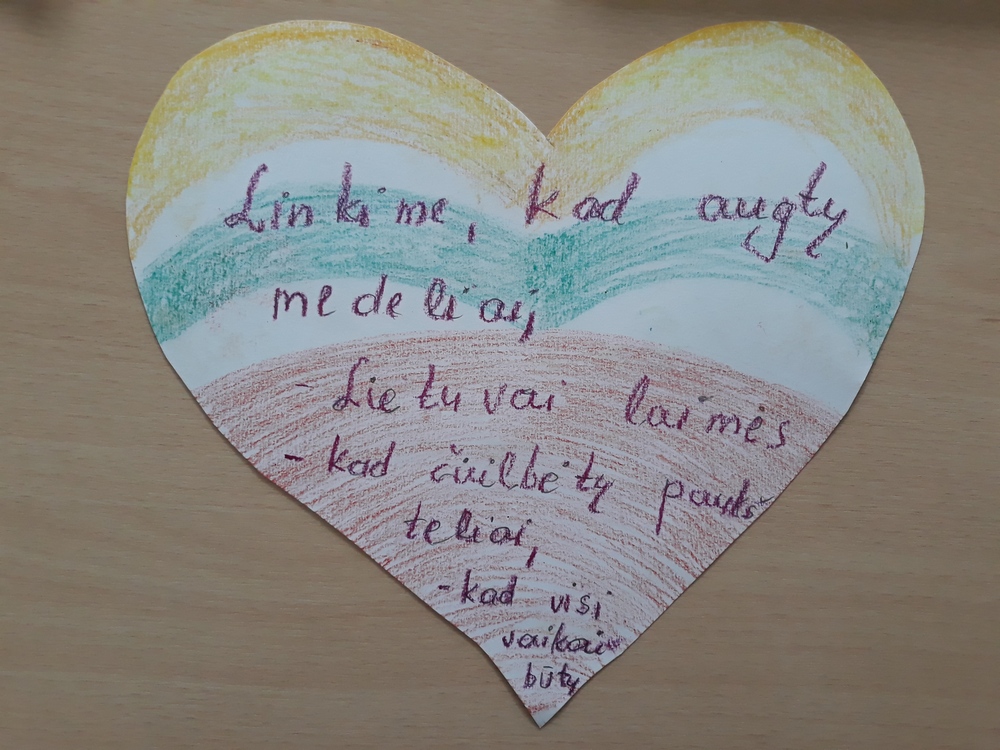 Linkime, kad augtų
medeliai,
- Lietuvai laimės
- kad čiulbėtų paukš
teliai,
- kad visi
vaikai
būtų